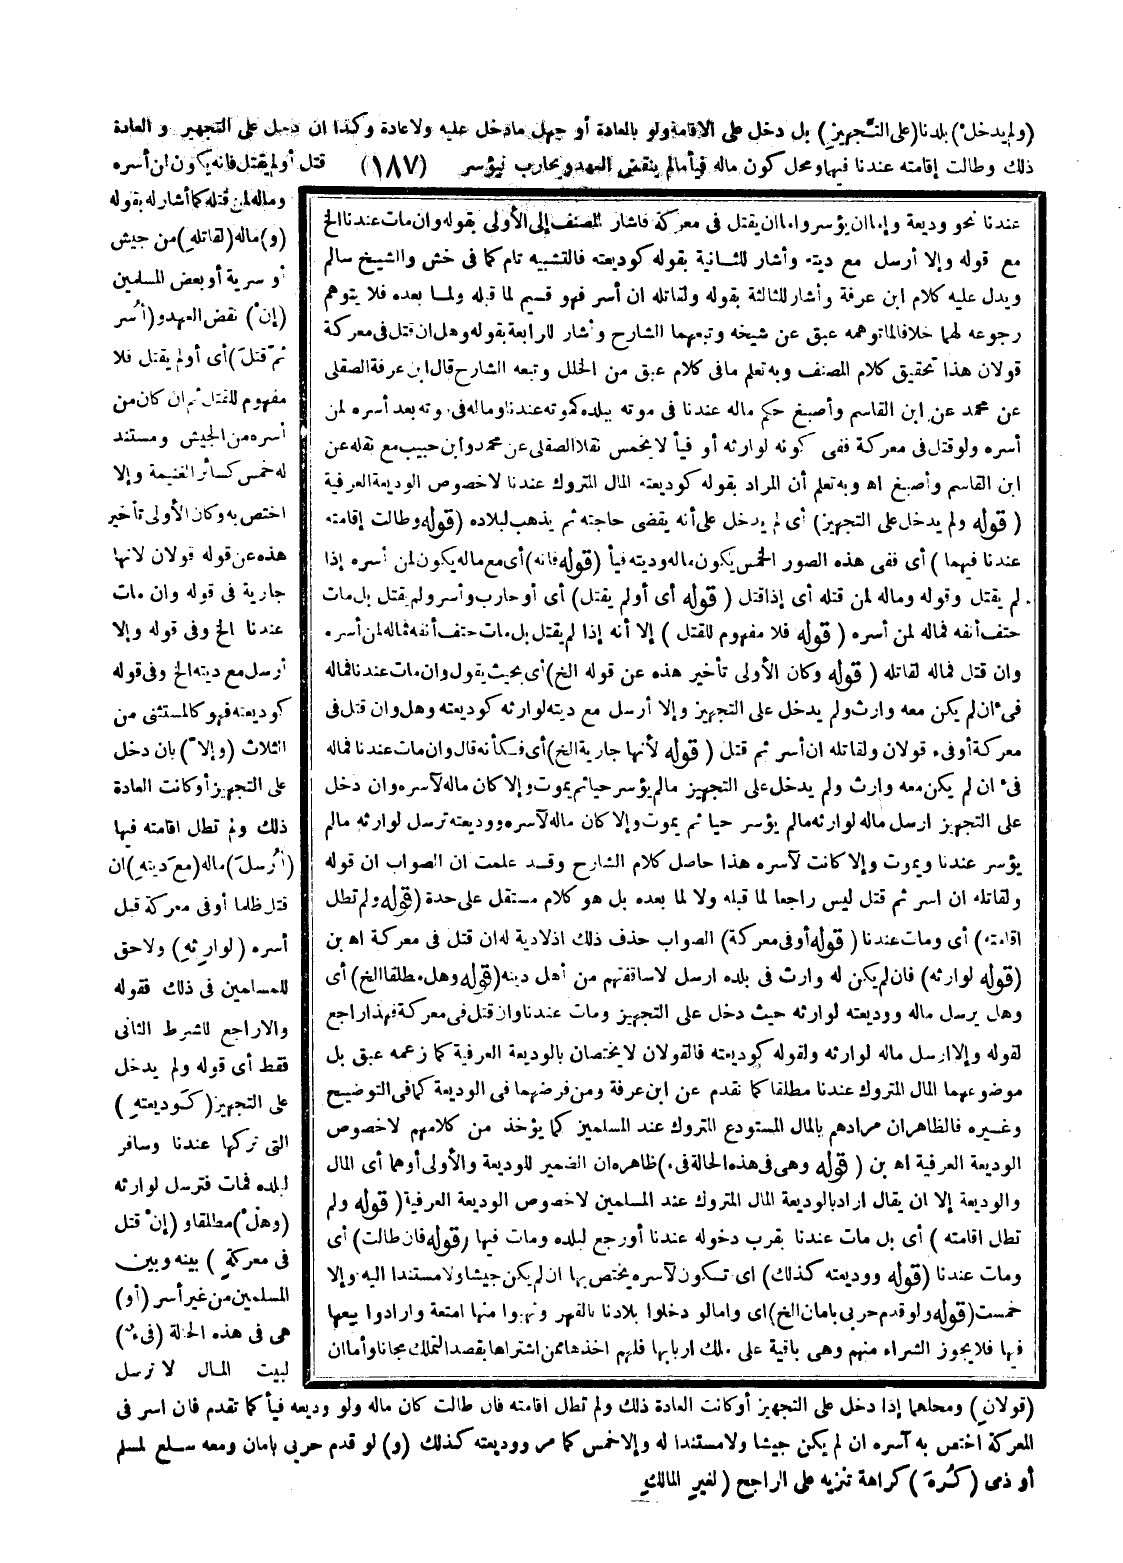 (ولم يدخل) بلدنا (على التجهيز) بل دخل على الاقامة ولو بالعادة أو جهل ما دخل عليه ولا عادة وكذا ان دخل على التجهيز و العادة
ذلك وطالت إقامته عندنا فيها ومحل كون ماله فيأ مالم ينقض العهد ويحارب فيؤسر (١٨٧) قتل أو لم يقتل فانه يكون لمن أسره
وماله لمن قتله كما أشار له بقوله
(و) ماله (لقاتله) من جيش
أو سرية أو بعض المسلمين
(إن) نقض العهد و (أسر
ثم قتل) أى أو لم يقتل فلا
مفهوم للقتل ثم ان كان من
أسره من الجيش ومستند
له خمس كسائر الغنيمة وإلا
اختص به وكان الأولى تأخير
هذه عن قوله قولان لانها
جارية فى قوله وان مات
عندنا الخ وفى قوله وإلا
أرسل مع ديته الخ وفى قوله
كوديعته فهو كالمستثنى من
الثلاث (وإلا) بان دخل
على التجهيز أو كانت العادة
ذلك ولم تطل اقامته فيها
(أرسل) ماله (مع ديته) ان
قتل ظلما أو فى معركة قبل
أسره (لوارثه) ولا حق
للمسلمين فى ذلك فقوله
والا راجع للشرط الثانى
فقط أى قوله ولم يدخل
على التجهيز (كوديعته)
التى تركها عندنا وسافر
لبلده فمات فترسل لوارثه
(وهل) مطلقا و (إن قتل
فى معركة) بينه وبين
المسلمين من غير أسر (أو)
هى فى هذه الحالة (فىء)
لبيت المال لا ترسل
عندنا نحو وديعة وإما ان يؤسر واما ان يقتل فى معركة فاشار المصنف إلى الأولى بقوله وان مات عندنا الخ
مع قوله وإلا أرسل مع ديته وأشار للثانية بقوله كوديعته فالتشبيه تام كما فى خش والشيخ سالم
ويدل عليه كلام ابن عرفة وأشار للثالثة بقوله ولقاتله ان أسر فهو قسيم لما قبله ولما بعده فلا يتوهم
رجوعه لهما خلافا لما توهمه عبق عن شيخه وتبعهما الشارح وأشار للرابعة بقوله وهل ان قتل فى معركة
قولان هذا تحقيق كلام المصنف وبه تعلم ما فى كلام عبق من الخلل وتبعه الشارح قال ابن عرفة الصقلى
عن محمد عن ابن القاسم وأصبغ حكم ماله عندنا فى موته ببلده كموته عندنا وماله فى موته بعد أسره لمن
أسره ولو قتل فى معركة ففى كونه لوارثه أو فيأ لا يخمس نقلا الصقلى عن محمد وابن حبيب مع نقله عن
ابن القاسم وأصبغ اه وبه تعلم أن المراد بقوله كوديعته المال المتروك عندنا لا خصوص الوديعة العرفية
(قوله ولم يدخل على التجهيز) أى لم يدخل على أنه يقضى حاجته ثم يذهب لبلاده (قوله وطالت إقامته
عندنا فيهما) أى ففى هذه الصور الخمس يكون ماله وديته فيأ (قوله فانه) أى مع ماله يكون لمن أسره إذا
لم يقتل وقوله وماله لمن قتله أى إذا قتل (قوله أى أو لم يقتل) أى أو حارب وأسر ولم يقتل بل مات
حتف أنفه فماله لمن أسره (قوله فلا مفهوم للقتل) إلا أنه إذا لم يقتل بل مات حتف أنفه فماله لمن أسره
وان قتل فماله لقاتله (قوله وكان الأولى تأخير هذه عن قوله الخ) أى بحيث يقول وان مات عندنا فماله
فىء ان لم يكن معه وارث ولم يدخل على التجهيز وإلا أرسل مع ديته لوارثه كوديعته وهل وان قتل فى
معركة أو فىء قولان ولقاتله ان أسر ثم قتل (قوله لأنها جارية الخ) أى فكأنه قال وان مات عندنا فماله
فىء ان لم يكن معه وارث ولم يدخل على التجهيز مالم يؤسر حيا ثم يموت وإلا كان ماله لآسره وان دخل
على التجهيز ارسل ماله لوارثه مالم يؤسر حيا ثم يموت وإلا كان ماله لآسره ووديعته ترسل لوارثه مالم
يؤسر عندنا ويموت وإلا كانت لآسره هذا حاصل كلام الشارح وقد علمت ان الصواب ان قوله
ولقاتله ان اسر ثم قتل ليس راجعا لما قبله ولا لما بعده بل هو كلام مستقل على حدة (قوله ولم تطل
اقامته) أى ومات عندنا (قوله أو فى معركة) الصواب حذف ذلك اذ لا دية له ان قتل فى معركة اه بن
(قوله لوارثه) فان لم يكن له وارث فى بلده ارسل لاساقفتهم من أهل دينه (قوله وهل مطلقا الخ) أى
وهل يرسل ماله ووديعته لوارثه حيث دخل على التجهيز ومات عندنا وان قتل فى معركة فهذا راجع
لقوله وإلا ارسل ماله لوارثه ولقوله كوديعته فالقولان لا يختصان بالوديعة العرفية كما زعمه عبق بل
موضوعهما المال المتروك عندنا مطلقا كما تقدم عن ابن عرفة ومن فرضهما فى الوديعة كما فى التوضيح
وغيره فالظاهر ان مرادهم بالمال المستودع المتروك عند المسلمين كما يؤخذ من كلامهم لا خصوص
الوديعة العرفية اه بن (قوله وهى فى هذه الحالة فىء) ظاهره ان الضمير للوديعة والأولى أو هما أى المال
والوديعة إلا ان يقال اراد بالوديعة المال المتروك عند المسلمين لا خصوص الوديعة العرفية (قوله ولم
تطل اقامته) أى بل مات عندنا بقرب دخوله عندنا أو رجع لبلده ومات فيها (قوله فان طالت) أى
ومات عندنا (قوله ووديعته كذلك) اى تكون لآسره يختص بها ان لم يكن جيشا ولا مستندا اليه وإلا
خمست (قوله ولو قدم حربى بامان الخ) اى واما لو دخلوا بلادنا بالقهر ونهبوا منها امتعة وارادوا بيعها
فيها فلا يجوز الشراء منهم وهى باقية على ملك اربابها فلهم اخذها ممن اشتراها بقصد التملك مجانا وأما ان
(قولان) ومحلهما إذا دخل على التجهيز أو كانت العادة ذلك ولم تطل اقامته فان طالت كان ماله ولو وديعه فيأ كما تقدم فان اسر فى
المعركة اختص به آسره ان لم يكن جيشا ولا مستندا له وإلا خمس كما مر ووديعته كذلك (و) لو قدم حربى بامان ومعه سلع لمسلم
أو ذمى (كره) كراهة تنزيه على الراجح (لغير المالك